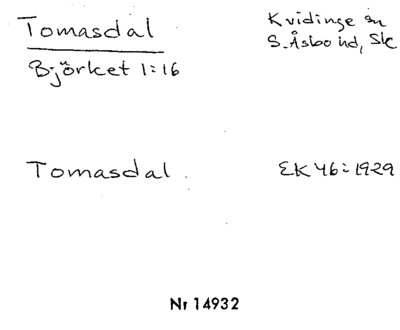 Tomasdal
Kvidinge sn
Björket 1:16
S. Åsbo hd, Sk
Tomasdal
EK 46:1929
Nr 14932